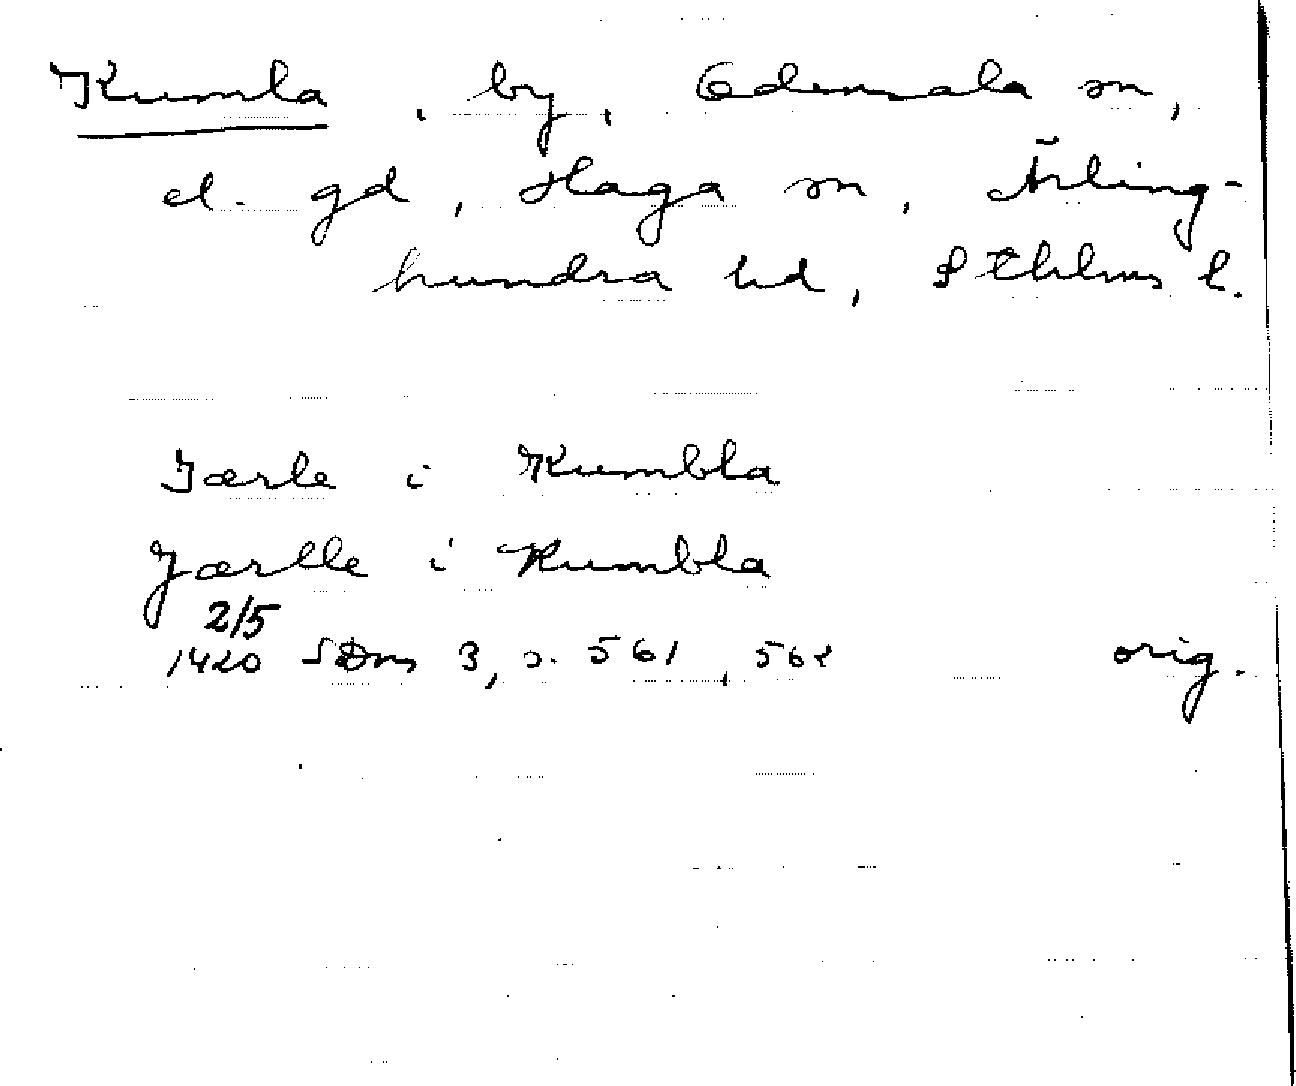 Kumla, by, Odensala sn,
el. gd, Haga sn, Ärling-
hundra hd, Sthlms l.
Jærle i Kumbla
Jærlle i Kumbla
2/5
1420 SDns 3, s. 561, 562 orig.